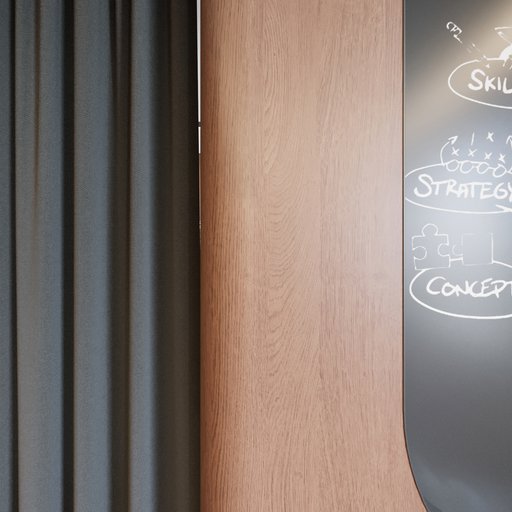 SKIL
STRATEGY
CONCEPT